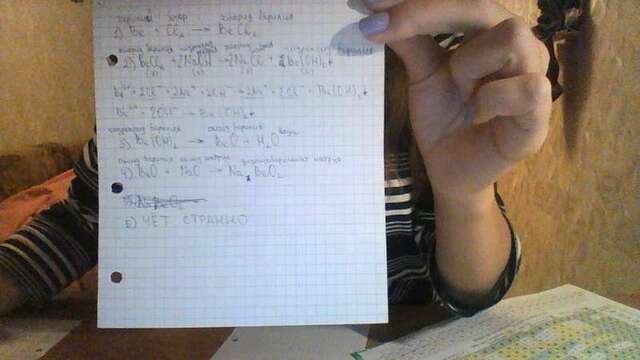 бериллий хлор хлорид бериллия
1) Be + Cl₂ → BeCl₂
хлорид бериллия гидроксид натрия хлорид натрия гидроксид бериллия
2) BeCl₂ + 2NaOH → 2NaCl + Be(OH)₂↓
(р) (р) (р) (н)
Be²⁺ + 2Cl⁻ + 2Na⁺ + 2OH⁻ → 2Na⁺ + 2Cl⁻ + Be(OH)₂↓
Be²⁺ + 2OH⁻ → Be(OH)₂↓
гидроксид бериллия оксид бериллия вода
3) Be(OH)₂ → BeO + H₂O
оксид бериллия оксид натрия натрия
4) BeO + NaO → Na₂BeO₂
5) ЧЁТ СТРАННО